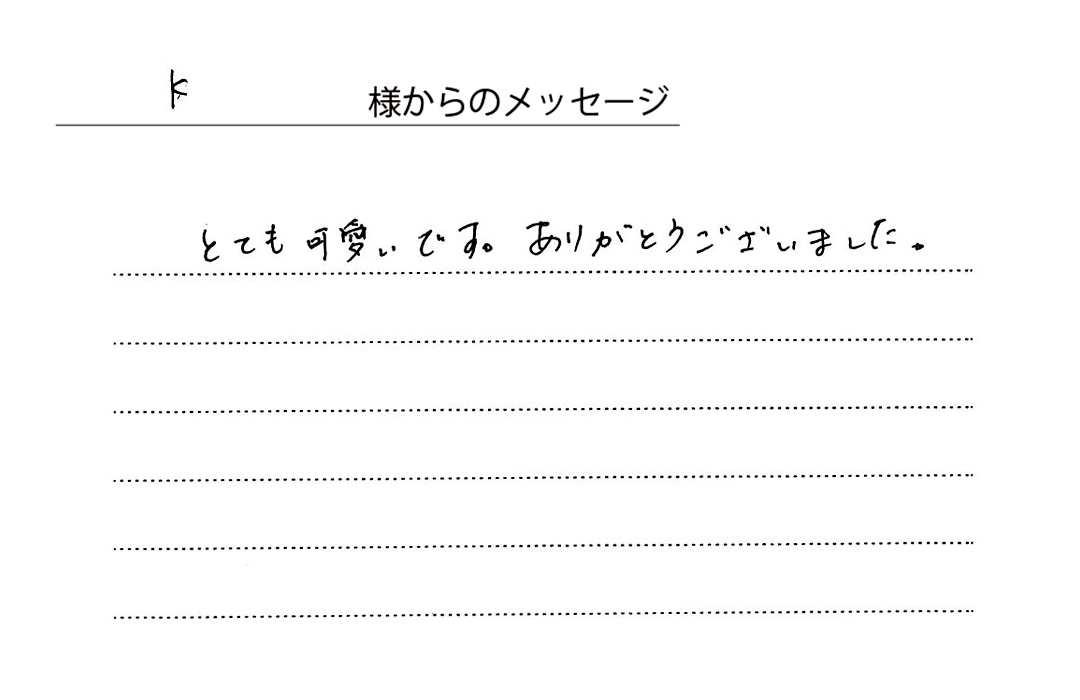 K 様からのメッセージ
とても可愛いです。ありがとうございました。